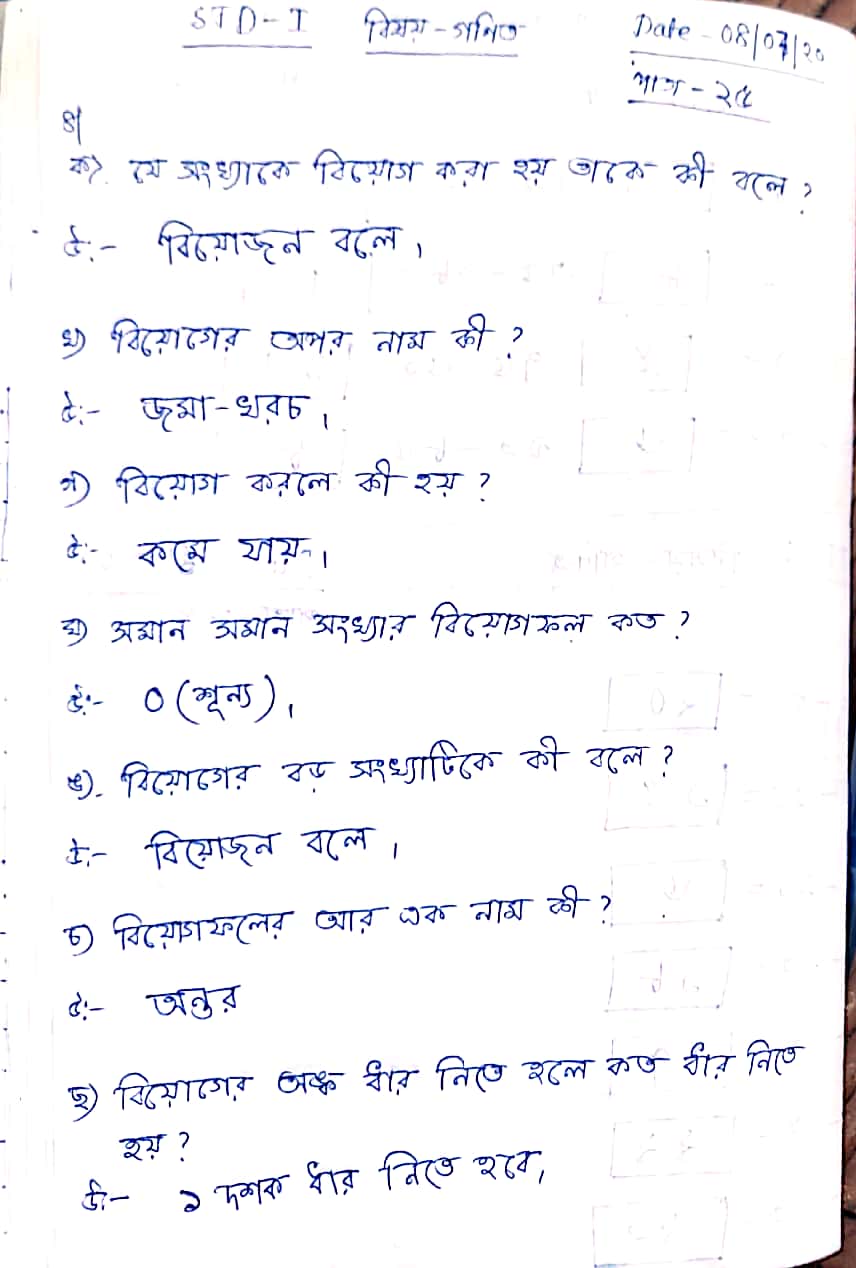 STD-I বিষয়-গনিত Date-08/07/20
পাঠ-২৫
৪|
ক) যে সংখ্যাকে বিয়োগ করা হয় তাকে কী বলে?
উ:- বিয়োজন বলে।
খ) বিয়োগের অপর নাম কী?
উ:- জমা-খরচ।
গ) বিয়োগ করলে কী হয়?
উ:- কমে যায়।
ঘ) সমান সমান সংখ্যার বিয়োগফল কত?
উ:- 0 (শূন্য)।
ঙ) বিয়োগের বড় সংখ্যাটিকে কী বলে?
উ:- বিয়োজন বলে।
চ) বিয়োগফলের আর এক নাম কী?
উ:- অন্তর
ছ) বিয়োগের অঙ্ক ধার নিতে হলে কত ধার নিতে
হয়?
উ:- ১ দশক ধার নিতে হবে,